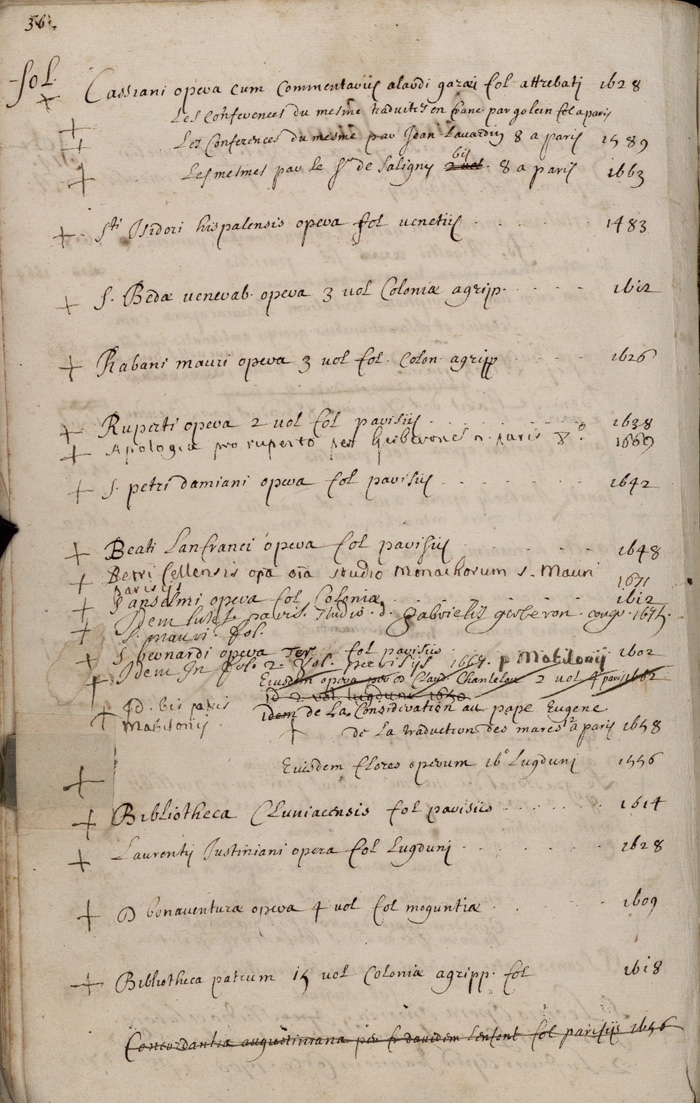 36.
fol.
Cassiani opera cum Commentariis alardi gazæi fol attrebatj 1628
Les Conferences du mesme traduites en franc par golein fol a paris
Les Conferences du mesme par Jean Lavardin 8 a paris 1589
Les mesmes par le Sr de Saligny 2 vol bis 8 a paris 1663
Sti Isidori hispalensis opera fol venetiis 1483
S. Bedæ venerab. opera 3 vol Coloniæ agripp. 1612
Rabani mauri opera 3 vol fol. Colon. agripp 1626
Ruperti opera 2 vol fol parisiis 1638
Apologia pro ruperto per Gerberonem paris 8o 1669
S. petri damiani opera fol parisiis 1642
Beati Lanfranci opera fol parisiis 1648
Petri Cellensis opa oia studio Monachorum S. Mauri
parisiis 1671
S anselmi opera fol Coloniæ 1612
Idem lutet. paris. studio. d. gabrielis gerberon. congr. 1675.
S. mauri. fol.
S bernardi opera fol parisiis 1602
Idem In fol. 2. vol. parisiis 1667. p Mabilonij
Eiusdem opera per D Claud Chantelou 2 vol 4 paris 1662
Id 2 vol lugduni 1650
Id. bis paris
Mabilonij
idem de La Consideration au pape Eugene
de La traduction des mares a paris 1658
Eiusdem flores operum 16o Lugdunj 1556
Bibliotheca Cluniacensis fol parisiis 1614
Laurentij Justiniani opera fol Lugdunj 1628
D bonaventuræ opera 4 vol fol moguntiæ 1609
Bibliotheca patrum 15 vol Coloniæ agripp. fol 1618
Concordantia augustiniana per fr davidem Lenfant fol parisiis 1656